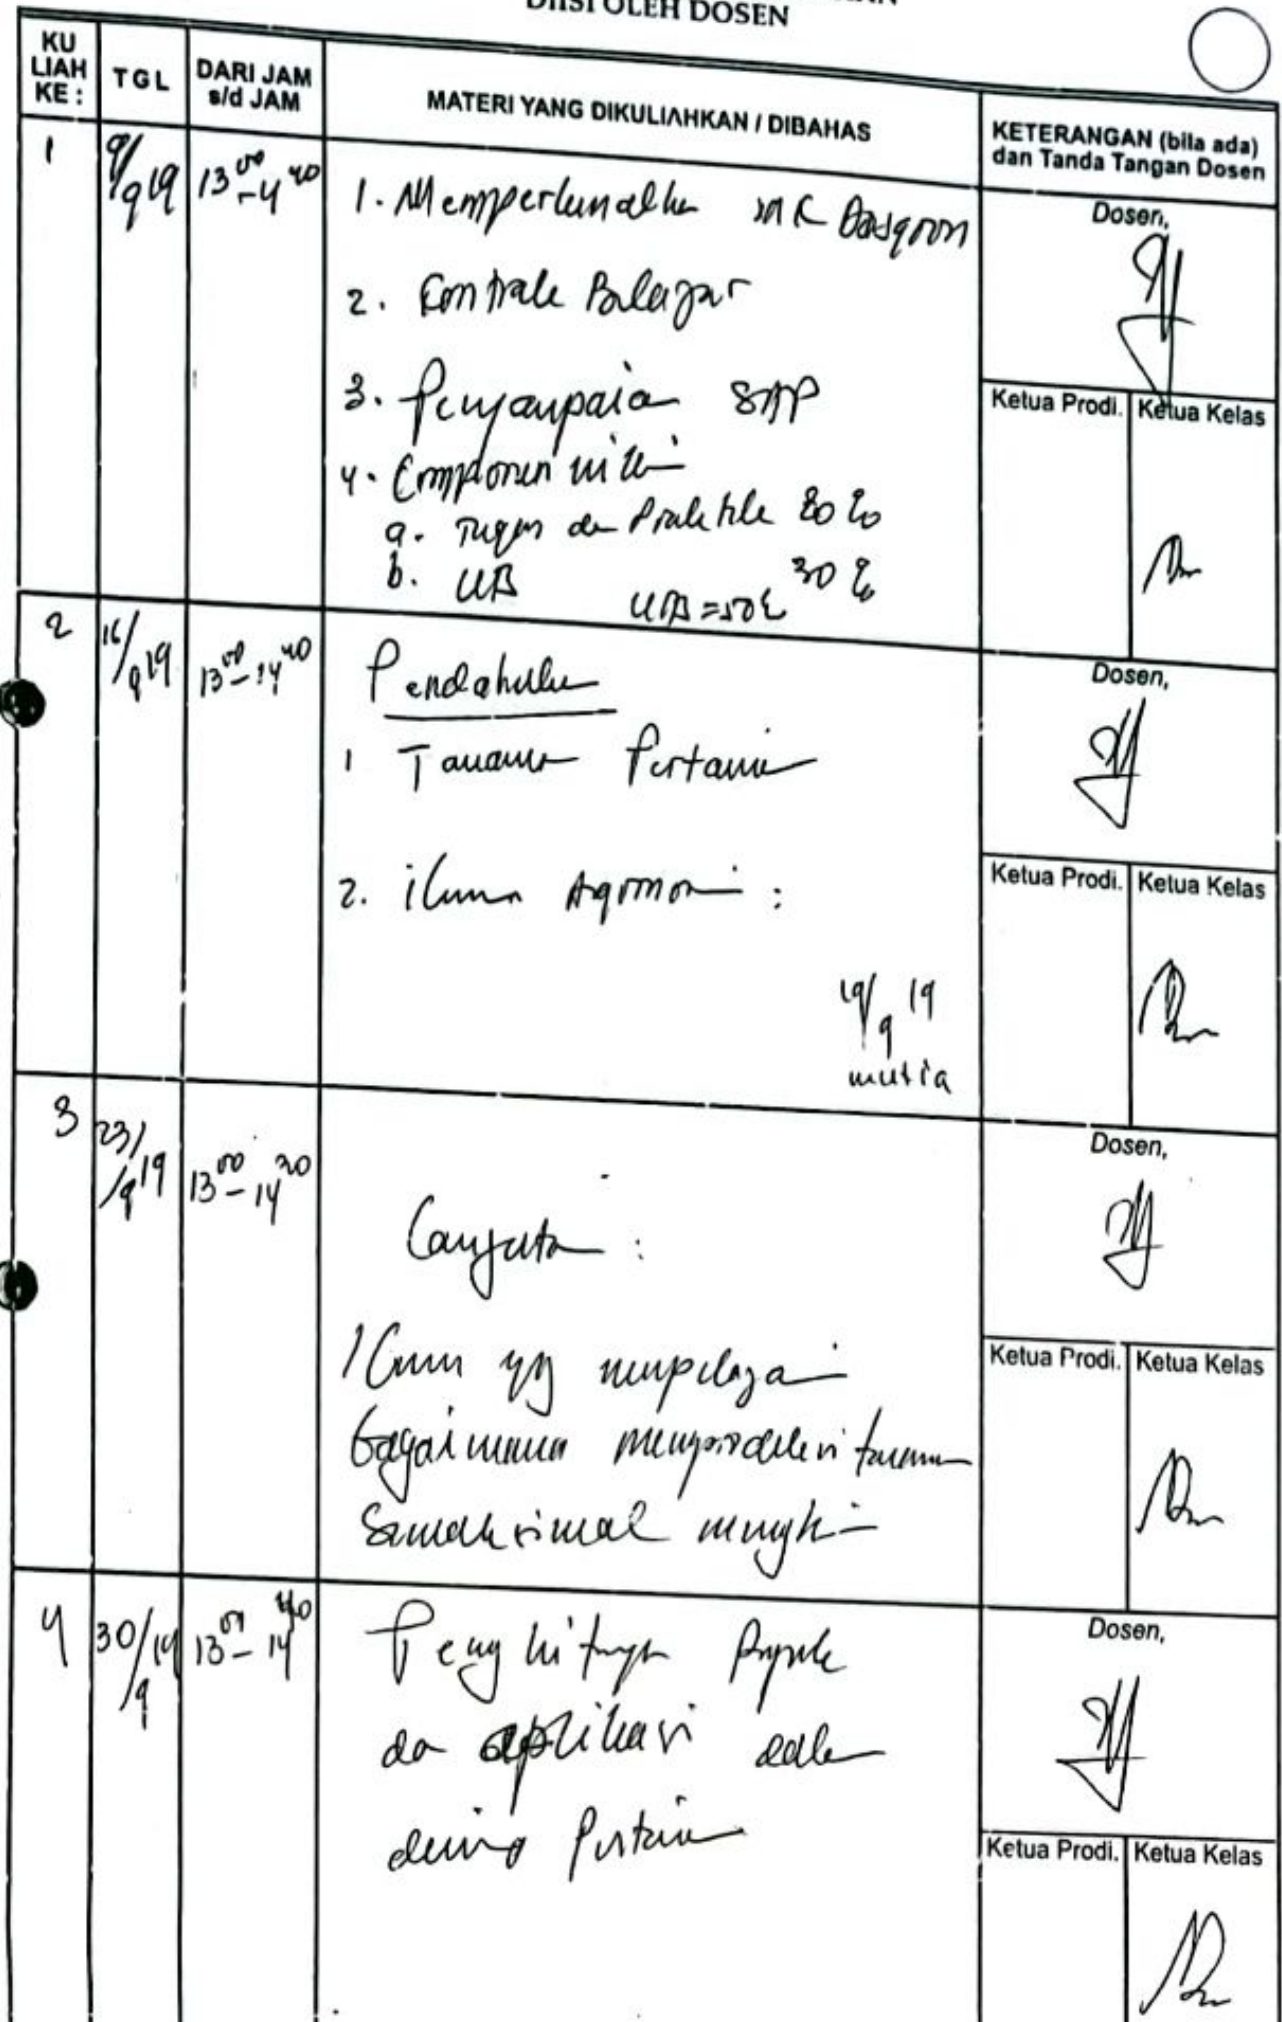 DIISI OLEH DOSEN
KU
LIAH
KE :
TGL
DARI JAM
s/d JAM
MATERI YANG DIKULIAHKAN / DIBAHAS
KETERANGAN (bila ada)
dan Tanda Tangan Dosen
1
9/9 19
13 00
1. Memperkenalkan MK
2. Kontrak Belajar
3. Penyampaian SAP
4. Komponen nilai
a. Tugas dan Praktik
b. UB 30 %
Dosen,
Ketua Prodi.
Ketua Kelas
2
16/9 19
13 00 - 14 40
Pendahuluan
1 Tanaman Pertanian
2. ilmu Agronomi :
19/9 19
mutia
Dosen,
Ketua Prodi.
Ketua Kelas
3
23/9 19
13 00 - 14
Lanjutan :
Ilmu yg mempelajari
bagaimana memproduksi tanaman
semaksimal mungkin
Dosen,
Ketua Prodi.
Ketua Kelas
4
30/9 19
13 00 - 14 40
Penghitungan Pupuk
dan aplikasi dalam
Pertanian
Dosen,
Ketua Prodi.
Ketua Kelas